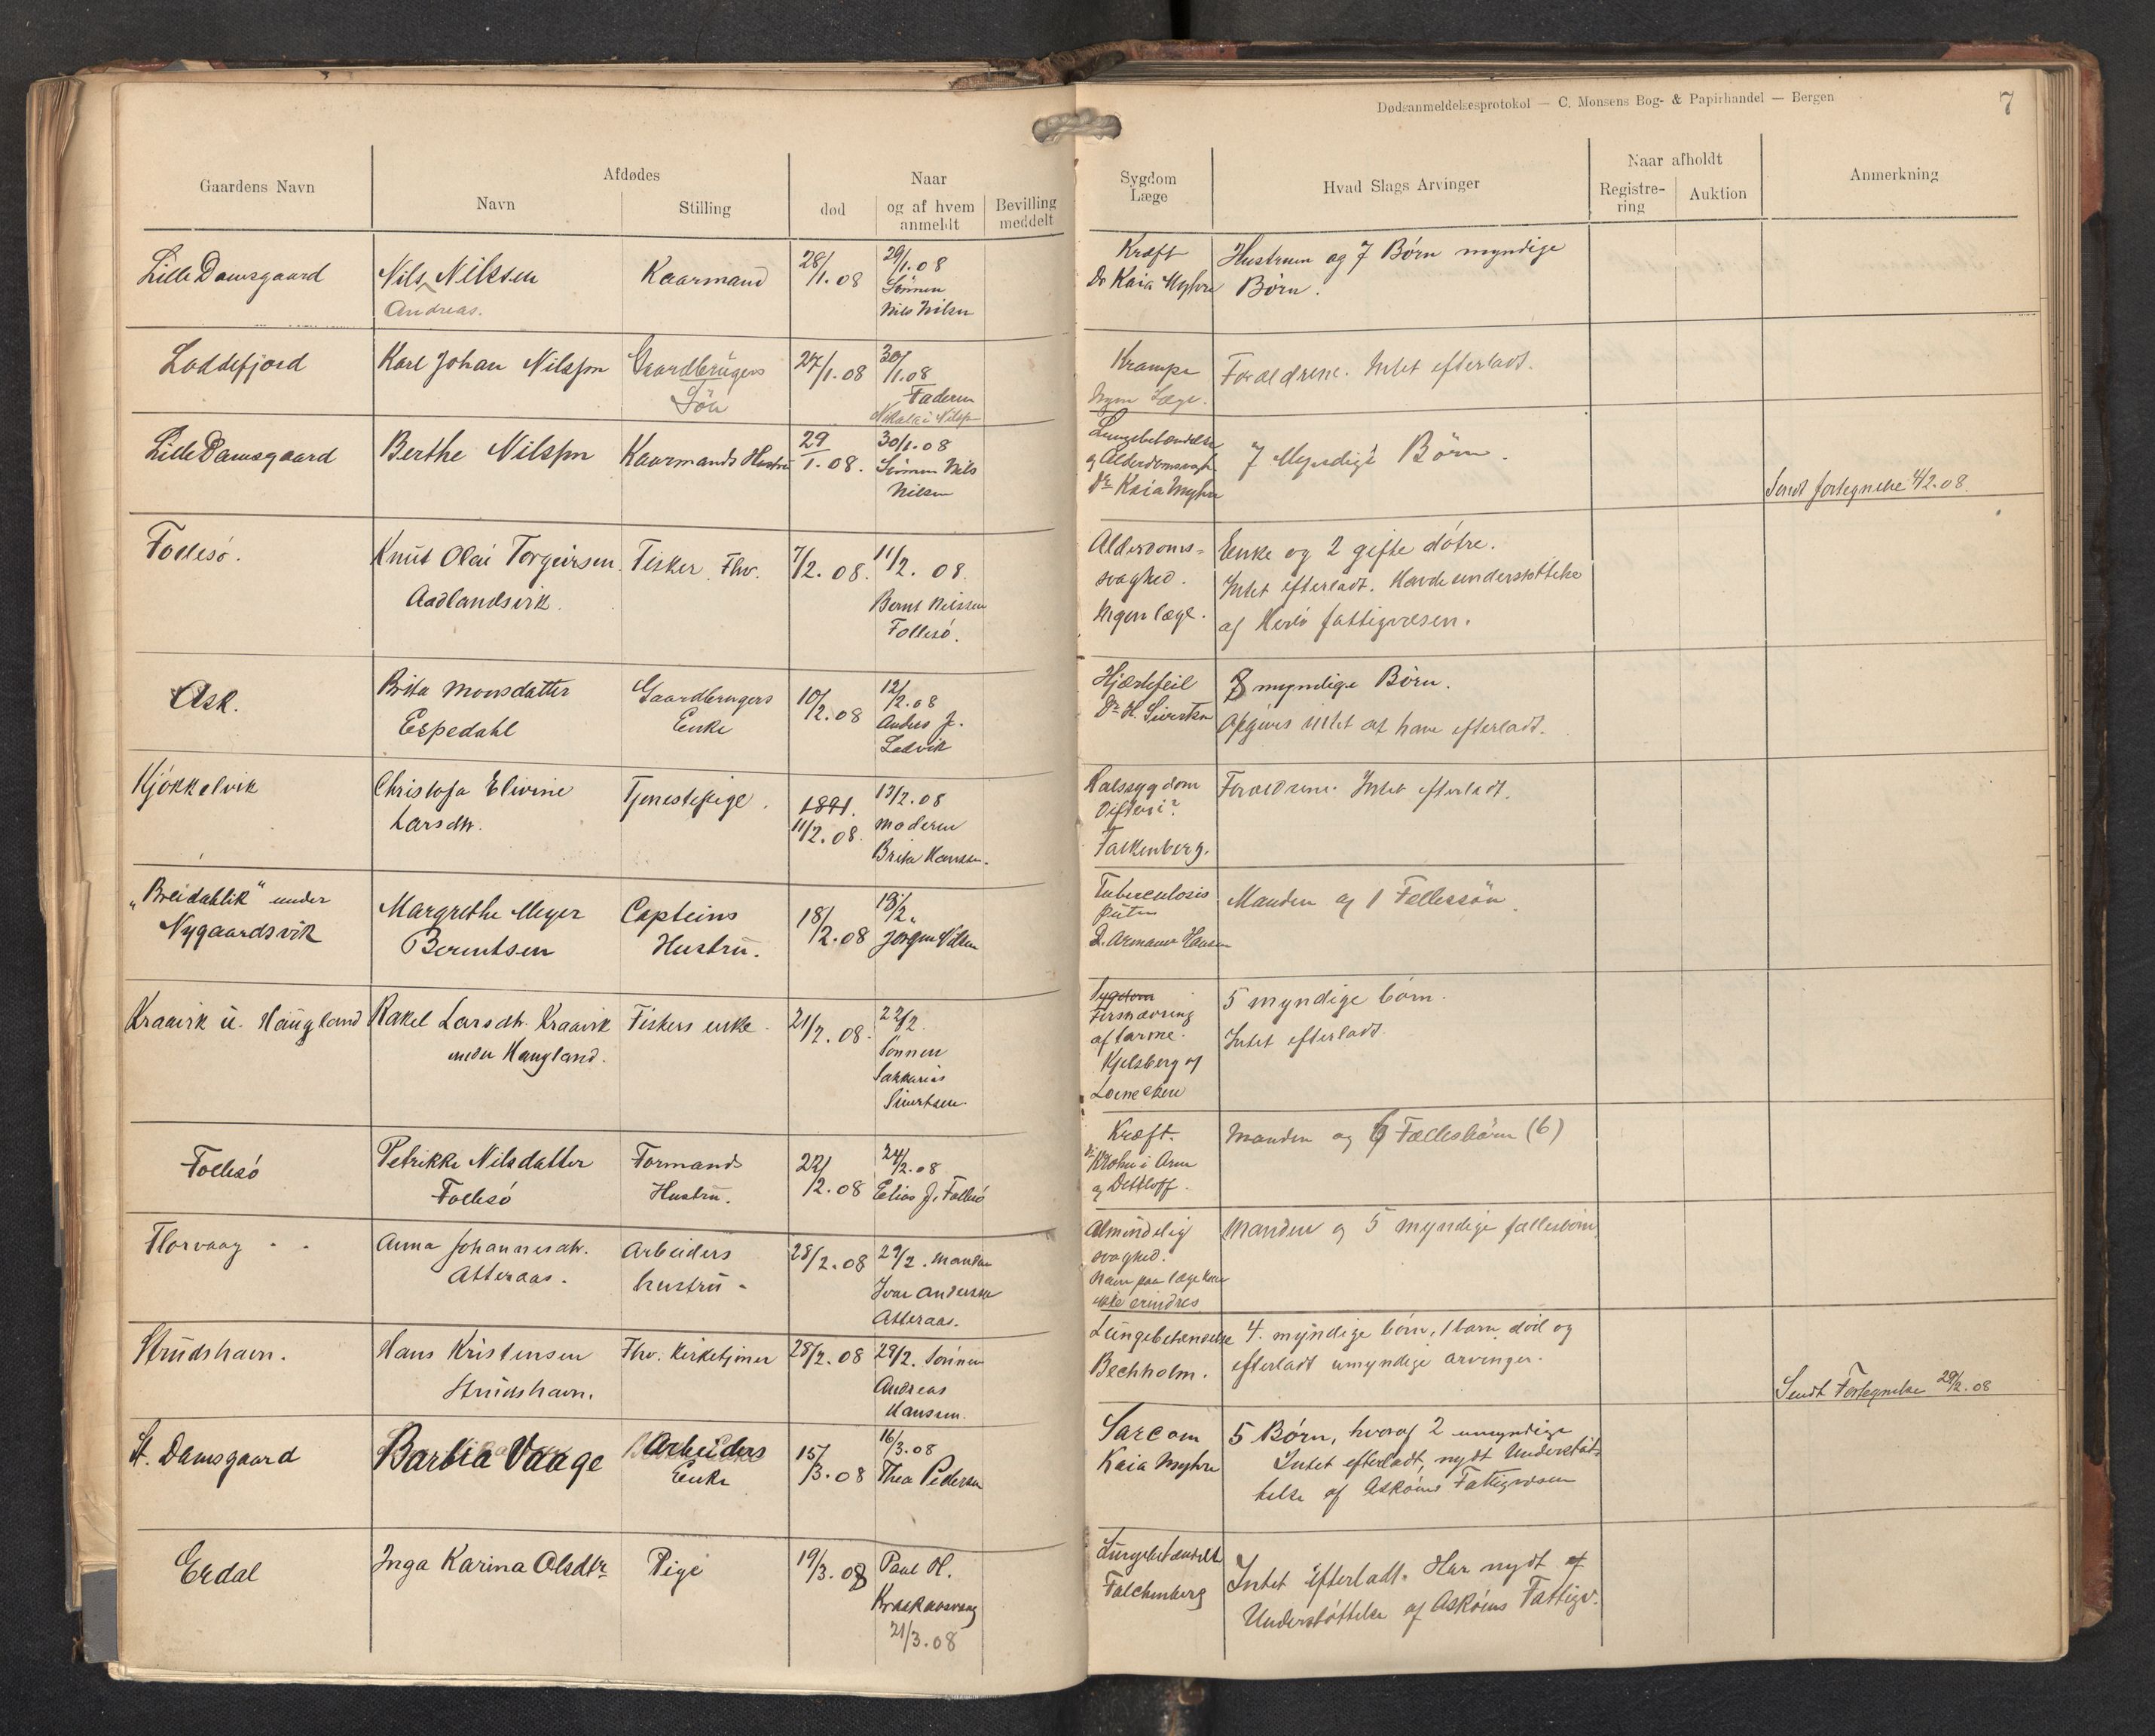 Dødsanmeldelsesprotokol — C. Monsens Bog- & Papirhandel — Bergen
7
Gaardens Navn
Afdødes
Navn
Stilling
død
Naar
og af hvem
anmeldt
Bevilling
meddelt
Sygdom
Læge
Hvad Slags Arvinger
Naar afholdt
Registre-
ring
Auktion
Anmerkning
Lille Damsgaard
Nils Nilssen
Andreas.
Kaarmand
28/1.08
29/1.08
Sønnen
Nils Nilsen
Kræft
Dr Kaia Myhre
Hustruen og 7 Børn myndige
Børn.
Loddefjord
Karl Johan Nilssen
Gaardbrugers
Søn
27/1.08
30/1.08
Faderen
Nikolai Nilss
Krampe
Ingen Læge.
Forældrene. Intet efterladt.
Lille Damsgaard
Berthe Nilssen
Kaarmands Hustru
29/1.08.
30/1.08
Sønnen Nils
Nilsen
Lungebetændelse
og Alderdomssvagh
Dr Kaia Myhre
7 Myndige Børn.
Sendt fortegnelse 4/2.08.
Follesø.
Knut Olai Torgeirsen
Aadlandsvik.
Fisker. Fhv.
7/2.08.
11/2.08.
Bernt Nilssen
Follesø.
Alderdoms-
svaghed.
Ingen læge.
Enke og 2 gifte døtre.
Intet efterladt. Havde understøttelse
af Herlø fattigvæsen.
Ask.
Brita Monsdatter
Espedahl
Gaardbrugers
Enke
10/2.08
12/2.08
Anders J.
Ladvik
Hjærtefeil
Dr H. Sivertsen
8 myndige Børn.
Opgives intet at have efterladt.
Kjøkkelvik
Christofa Elivine
Larsdtr.
Tjenestepige.
1891.
11/2.08.
13/2.08
moderen
Brita Hanssen.
Halssygdom
Difteri?
Falkenberg.
Forældrene. Intet efterladt.
„Breidablik“ under
Nygaardsvik
Margrethe Meyer
Berentsen
Capteins
Hustru.
18/2.08
18/2.
Jørgen Nilsen
Tuberculosis
D. Armauer Hansen
Manden og 1 Fellessøn.
Kraavik u. Haugland
Rakel Larsdtr. Kraavik
under Haugland.
Fiskers enke.
21/2.08.
22/2.
Sønnen
Sakkarias
Sivertsen
Sygdom
Forsnævring
af tarme.
Kjelsberg og
Loennecken
5 myndige børn.
Intet efterladt.
Follesø
Petrikke Nilsdatter
Follesø
Formands
Hustru.
22/2.08
24/2.08
Elias J. Follesø
Kræft.
Dr Krohn i Arna
og Dethloff.
Manden og 6 Fællesbørn (6)
Florvaag
Anna Johannesdtr.
Atteraas.
Arbeiders
hustru
28/2.08
29/2. Manden
Ivar Andersen
Atteraas.
Almindelig
svaghed.
Navn paa læge kan
ikke erindres
Manden og 5 myndige fællesbørn
Strudshavn.
Hans Kristensen
Strudshavn.
Fhv. Kirketjener
28/2.08
29/2. Sønnen
Andreas
Hanssen.
Lungebetændelse
Bechholm.
4. myndige børn, 1 barn død og
efterladt umyndige arvinger.
Sendt Fortegnelse 29/2.08
St. Damsgaard
Barbra Vaage
Arbeiders
Enke
15/3.08
16/3.08
Thea Pedersen
Sarcom
Kaia Myhre
5 Børn, hvoraf 2 umyndige
Intet efterladt, nydt Understøt-
telse af Askøens Fattigvæsen
Erdal
Inga Karina Olsdtr
Pige
19/3.08
Paul H.
Kraakaasvaag
21/3.08
Lungebetændelse
Falchenberg
Intet efterladt. Har nydt af
Understøttelse af Askøens Fattigv.